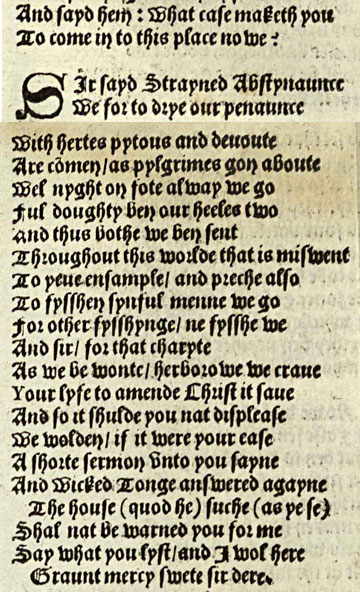 And sayd hem : what case maketh you
To come in to this place nowe :
Sir sayd Strayned Abstynaunce
We for to drye our penaunce
With hertes pytous and deuoute
Are cõmen/as pylgrimes gon aboute
Wel nyght on fote alway we go
Ful doughty ben our heeles two
And thus bothe we ben sent
Throughout this worlde that is miswent
To yeue ensample/ and preche also
To fysshen synful menne we go
For other fysshynge/ ne fysshe we
And sir/ for that charyte
As we be wonte/ herborowe we craue
Your lyfe to amende Christ it saue
And so it shulde you nat displease
We wolden/ if it were your ease
A shorte sermon vnto you sayne
And Wicked Tonge answered agayne
The house (quod he) suche (as ye se)
Shal nat be warned you for me
Say what you lyst/and I wol here
Graunt mercy swete sir dere.